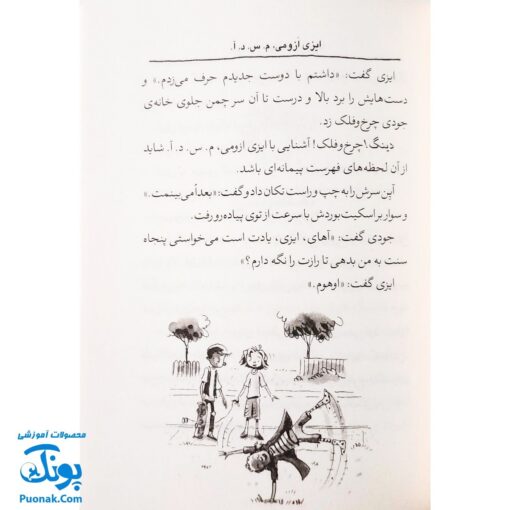 ایزی اَزومی، م. س. د. آ.
ایزی گفت: «داشتم با دوست جدیدم حرف می‌زدم.» و
دست‌هایش را برد بالا و درست تا آن سر چمن جلوی خانه‌ی
جودی چرخ‌وفلک زد.
دینگ! چرخ‌وفلک! آشنایی با ایزی ازومی، م. س. د. آ. شاید
از آن لحظه‌های فهرست پیمانه‌ای باشد.
آپن سرش را به چپ و راست تکان داد و گفت: «بعداً می‌بینمت.»
و سوار بر اسکیت‌بوردش با سرعت از توی پیاده‌رو رفت.
جودی گفت: «آهای، ایزی، یادت است می‌خواستی پنجاه
سنت به من بدهی تا رازت را نگه دارم؟»
ایزی گفت: «اوهوم.»
محصولات آموزشی
پونک
Puonak.Com